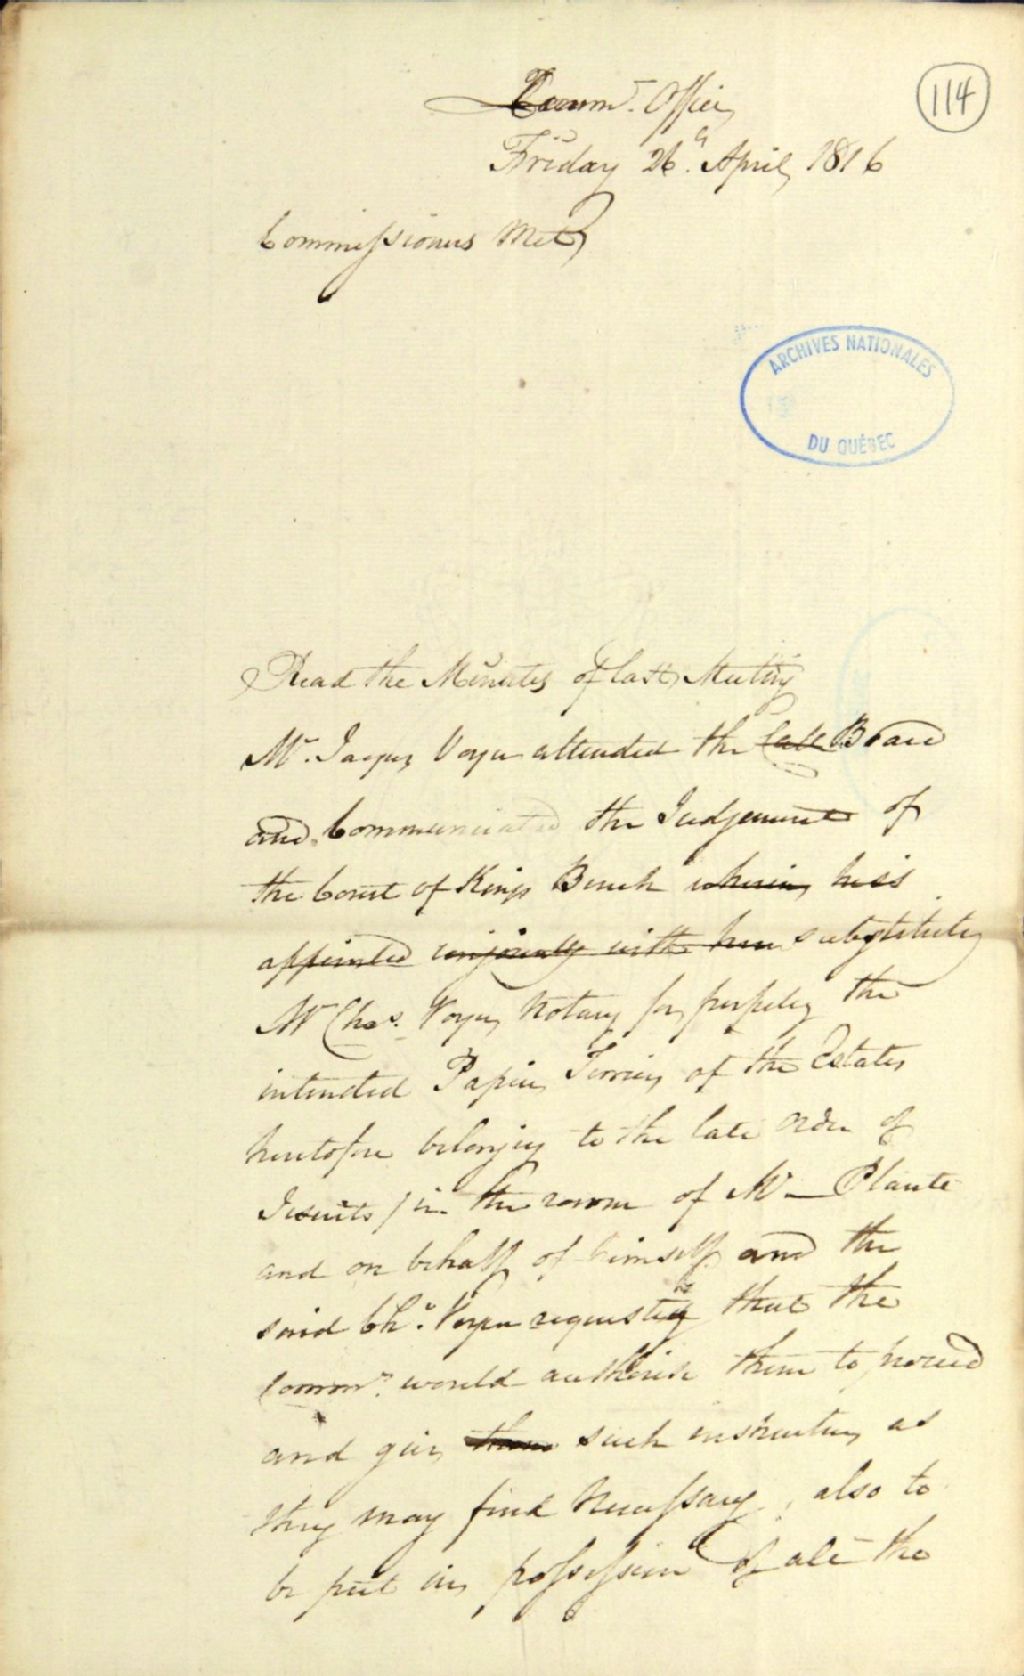 114
Comm.rs Office
Friday 26th April 1816
Commissioners Met
ARCHIVES NATIONALES
DU QUÉBEC
Read the Minutes of last Meeting
Mr. Jacques Voyer attended the late Board
and Communicated the Judgement of
the Court of Kings Bench wherein he is
appointed conjointly with him substituting
Mr Chas. Voyer Notary for perfecting the
intended Papier Terrier of the Estates
heretofore belonging to the late Order of
Jesuits / in the room of Mr Plante
and on behalf of himself and the
said Chs. Voyer requesting that the
Commrs. would authorise them to proceed
and give them such instructions as
they may find Necessary, also to
be put in possession of all the